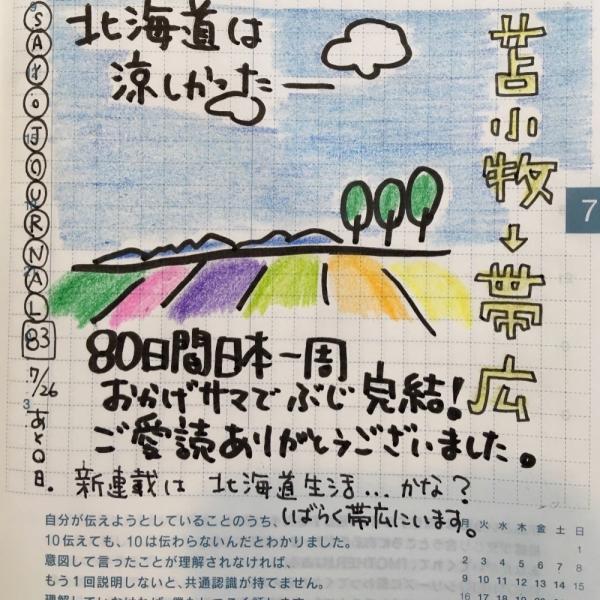 SAYO JOURNAL 83
7/26
あと0日.
北海道は
涼しかったー
苫小牧→帯広
7
80日間日本一周
おかげサマでぶじ完結!
ご愛読ありがとうございました。
新連載は 北海道生活...かな?
しばらく帯広にいます。
自分が伝えようとしていることのうち、
10伝えても、10は伝わらないんだとわかりました。
意図して言ったことが理解されなければ、
もう1回説明しないと、共通認識が持てません。
月 火 水 木 金 土 日
1
2 3 4 5 6 7 8
9 10 11 12 13 14 15